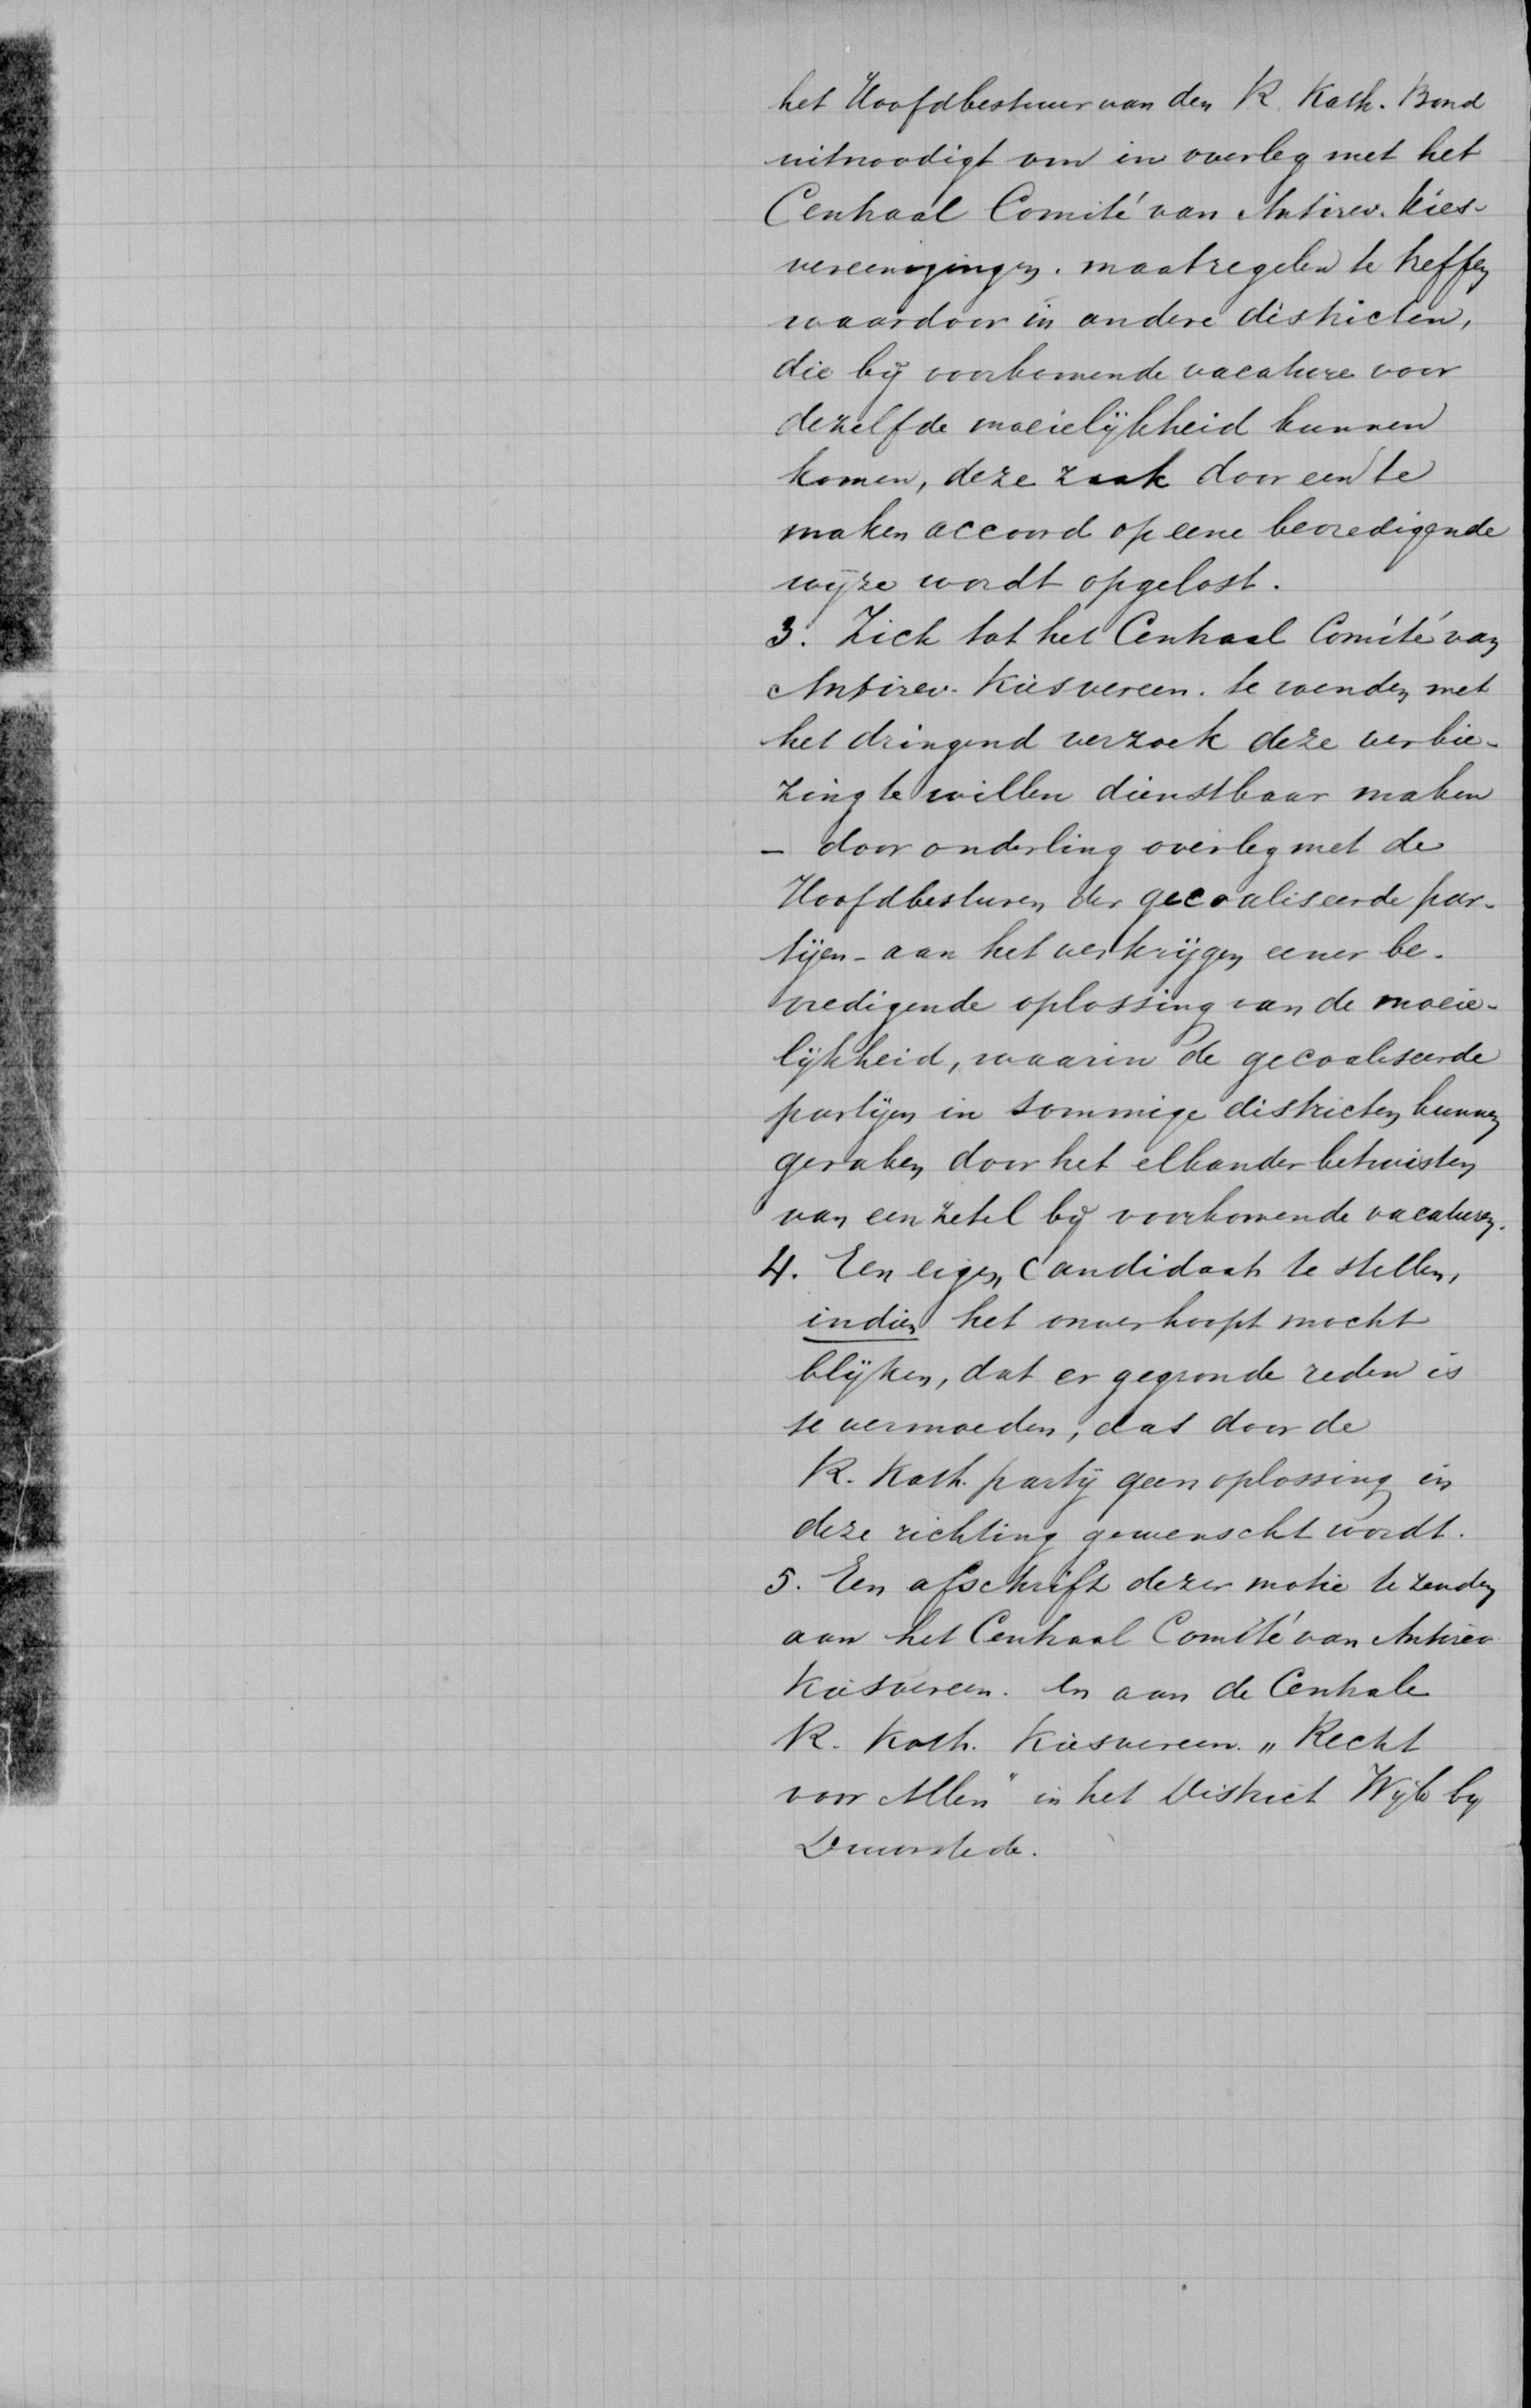 het Hoofdbestuur van den R. Kath. Bond
uitnoodigt om in overleg met het
Centraal Comité van Antirev. Kies-
vereenigingen. maatregelen te treffen
waardoor in andere districten,
die bij voorkomende vacature voor
dezelfde moeielijkheid kunnen
komen, deze zaak door een te
maken accoord op eene bevredigende
wijze wordt opgelost.
3. Zich tot het Centraal Comité van
Antirev. Kiesvereen. te wenden met
het dringend verzoek deze verkie-
zing te willen dienstbaar maken
- door onderling overleg met de
Hoofdbesturen der gecoaliseerde par-
tijen - aan het verkrijgen eener be-
vredigende oplossing van de moeie-
lijkheid, waarin de gecoaliseerde
partijen in sommige districten kunnen
geraken door het elkander betwisten
van een zetel bij voorkomende vacaturen.
4. Een eigen Candidaat te stellen,
indien het onverhoopt mocht
blijken, dat er gegronde reden is
te vermoeden, dat door de
R. Kath. partij geen oplossing in
deze richting gewenscht wordt.
5. Een afschrift dezer motie te zenden
aan het Centraal Comité van Antirev.
Kiesvereen. en aan de Centrale
R. Kath. Kiesvereen. „Recht
voor Allen" in het District Wijk bij
Duurstede.